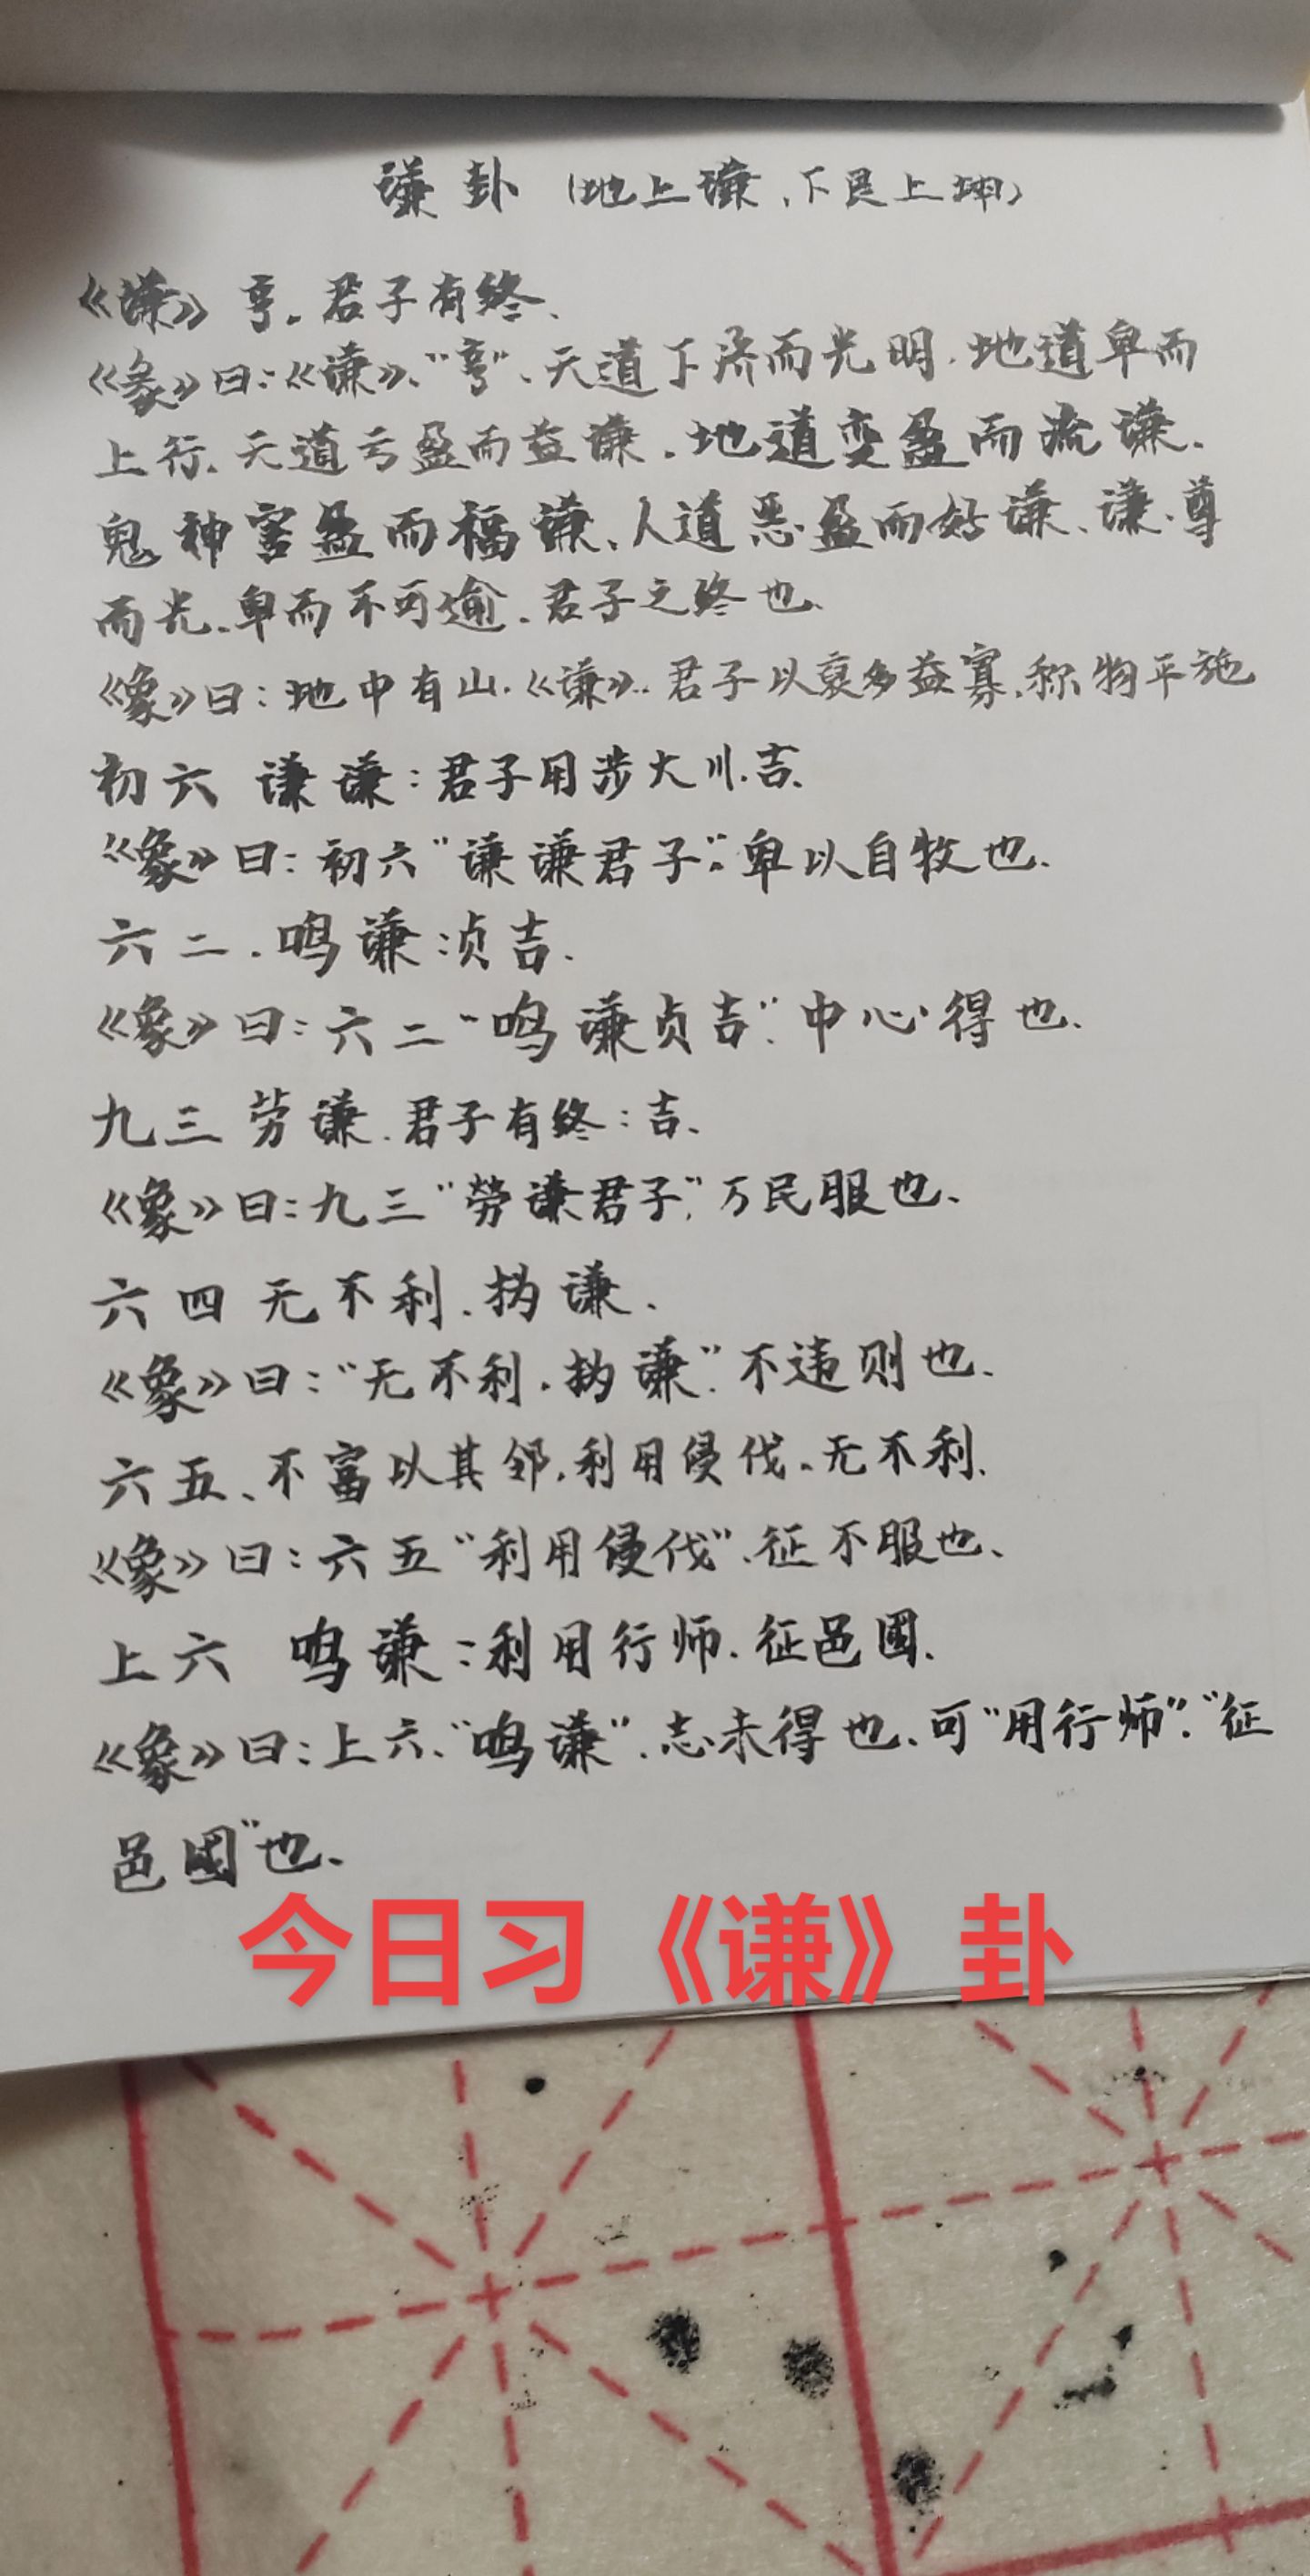 谦卦（地上谦、下艮上坤）
《谦》亨。君子有终、
《彖》曰：《谦》、“亨”、天道下济而光明、地道卑而
上行、天道亏盈而益谦、地道变盈而流谦、
鬼神害盈而福谦、人道恶盈而好谦、谦、尊
而光、卑而不可逾、君子之终也、
《象》曰：地中有山、《谦》..君子以裒多益寡、称物平施
初六 谦谦：君子用涉大川、吉、
《象》曰：初六“谦谦君子”。卑以自牧也、
六二、鸣谦：贞吉、
《象》曰：六二“鸣谦贞吉”、中心得也、
九三 劳谦、君子有终：吉、
《象》曰：九三“勞谦君子”，万民服也、
六四 无不利、㧑谦、
《象》曰：“无不利、㧑谦”、不违则也、
六五、不富以其邻，利用侵伐。无不利、
《象》曰：六五“利用侵伐”、征不服也、
上六 鸣谦：利用行师、征邑國、
《象》曰：上六、“鸣谦”、志未得也、可“用行师”、“征
邑國”也、
今日习《谦》卦